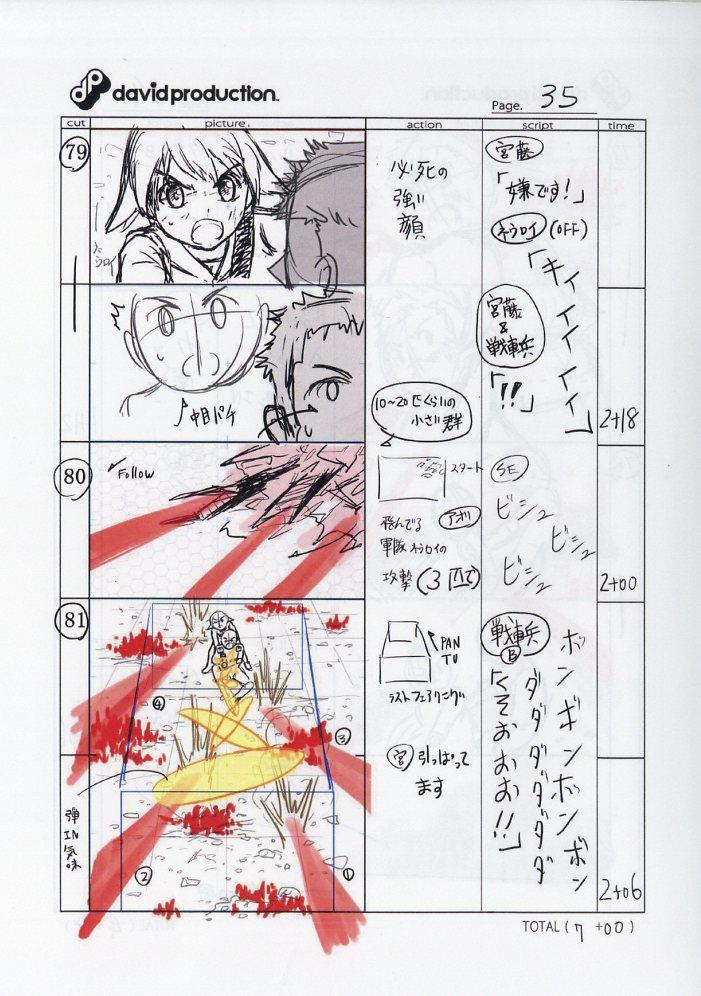 davidproduction.
Page. 35
cut
picture.
action
script
time
79
必死の
強い
顔
宮藤
「嫌です!」
ネウロイ (OFF)
「キィィィィィ」
宮藤
&
戦車兵
「!!」
ネウロイ
中目パチ
2+18
80
Follow
10~20匹くらいの
小さい群
スタート
飛んでる アオリ
軍隊ネウロイの
攻撃(3匹で)
SE
ビシュ
ビシュ
ビシュ
2+00
81
④
③
②
①
弾IN気味
PAN
TU
ラストフェアリング
宮 引っぱって
ます
戦車兵
B
「くそおおお!!」
ダダダダダダ
ボンギンボンボン
2+06
TOTAL ( 7 +00 )